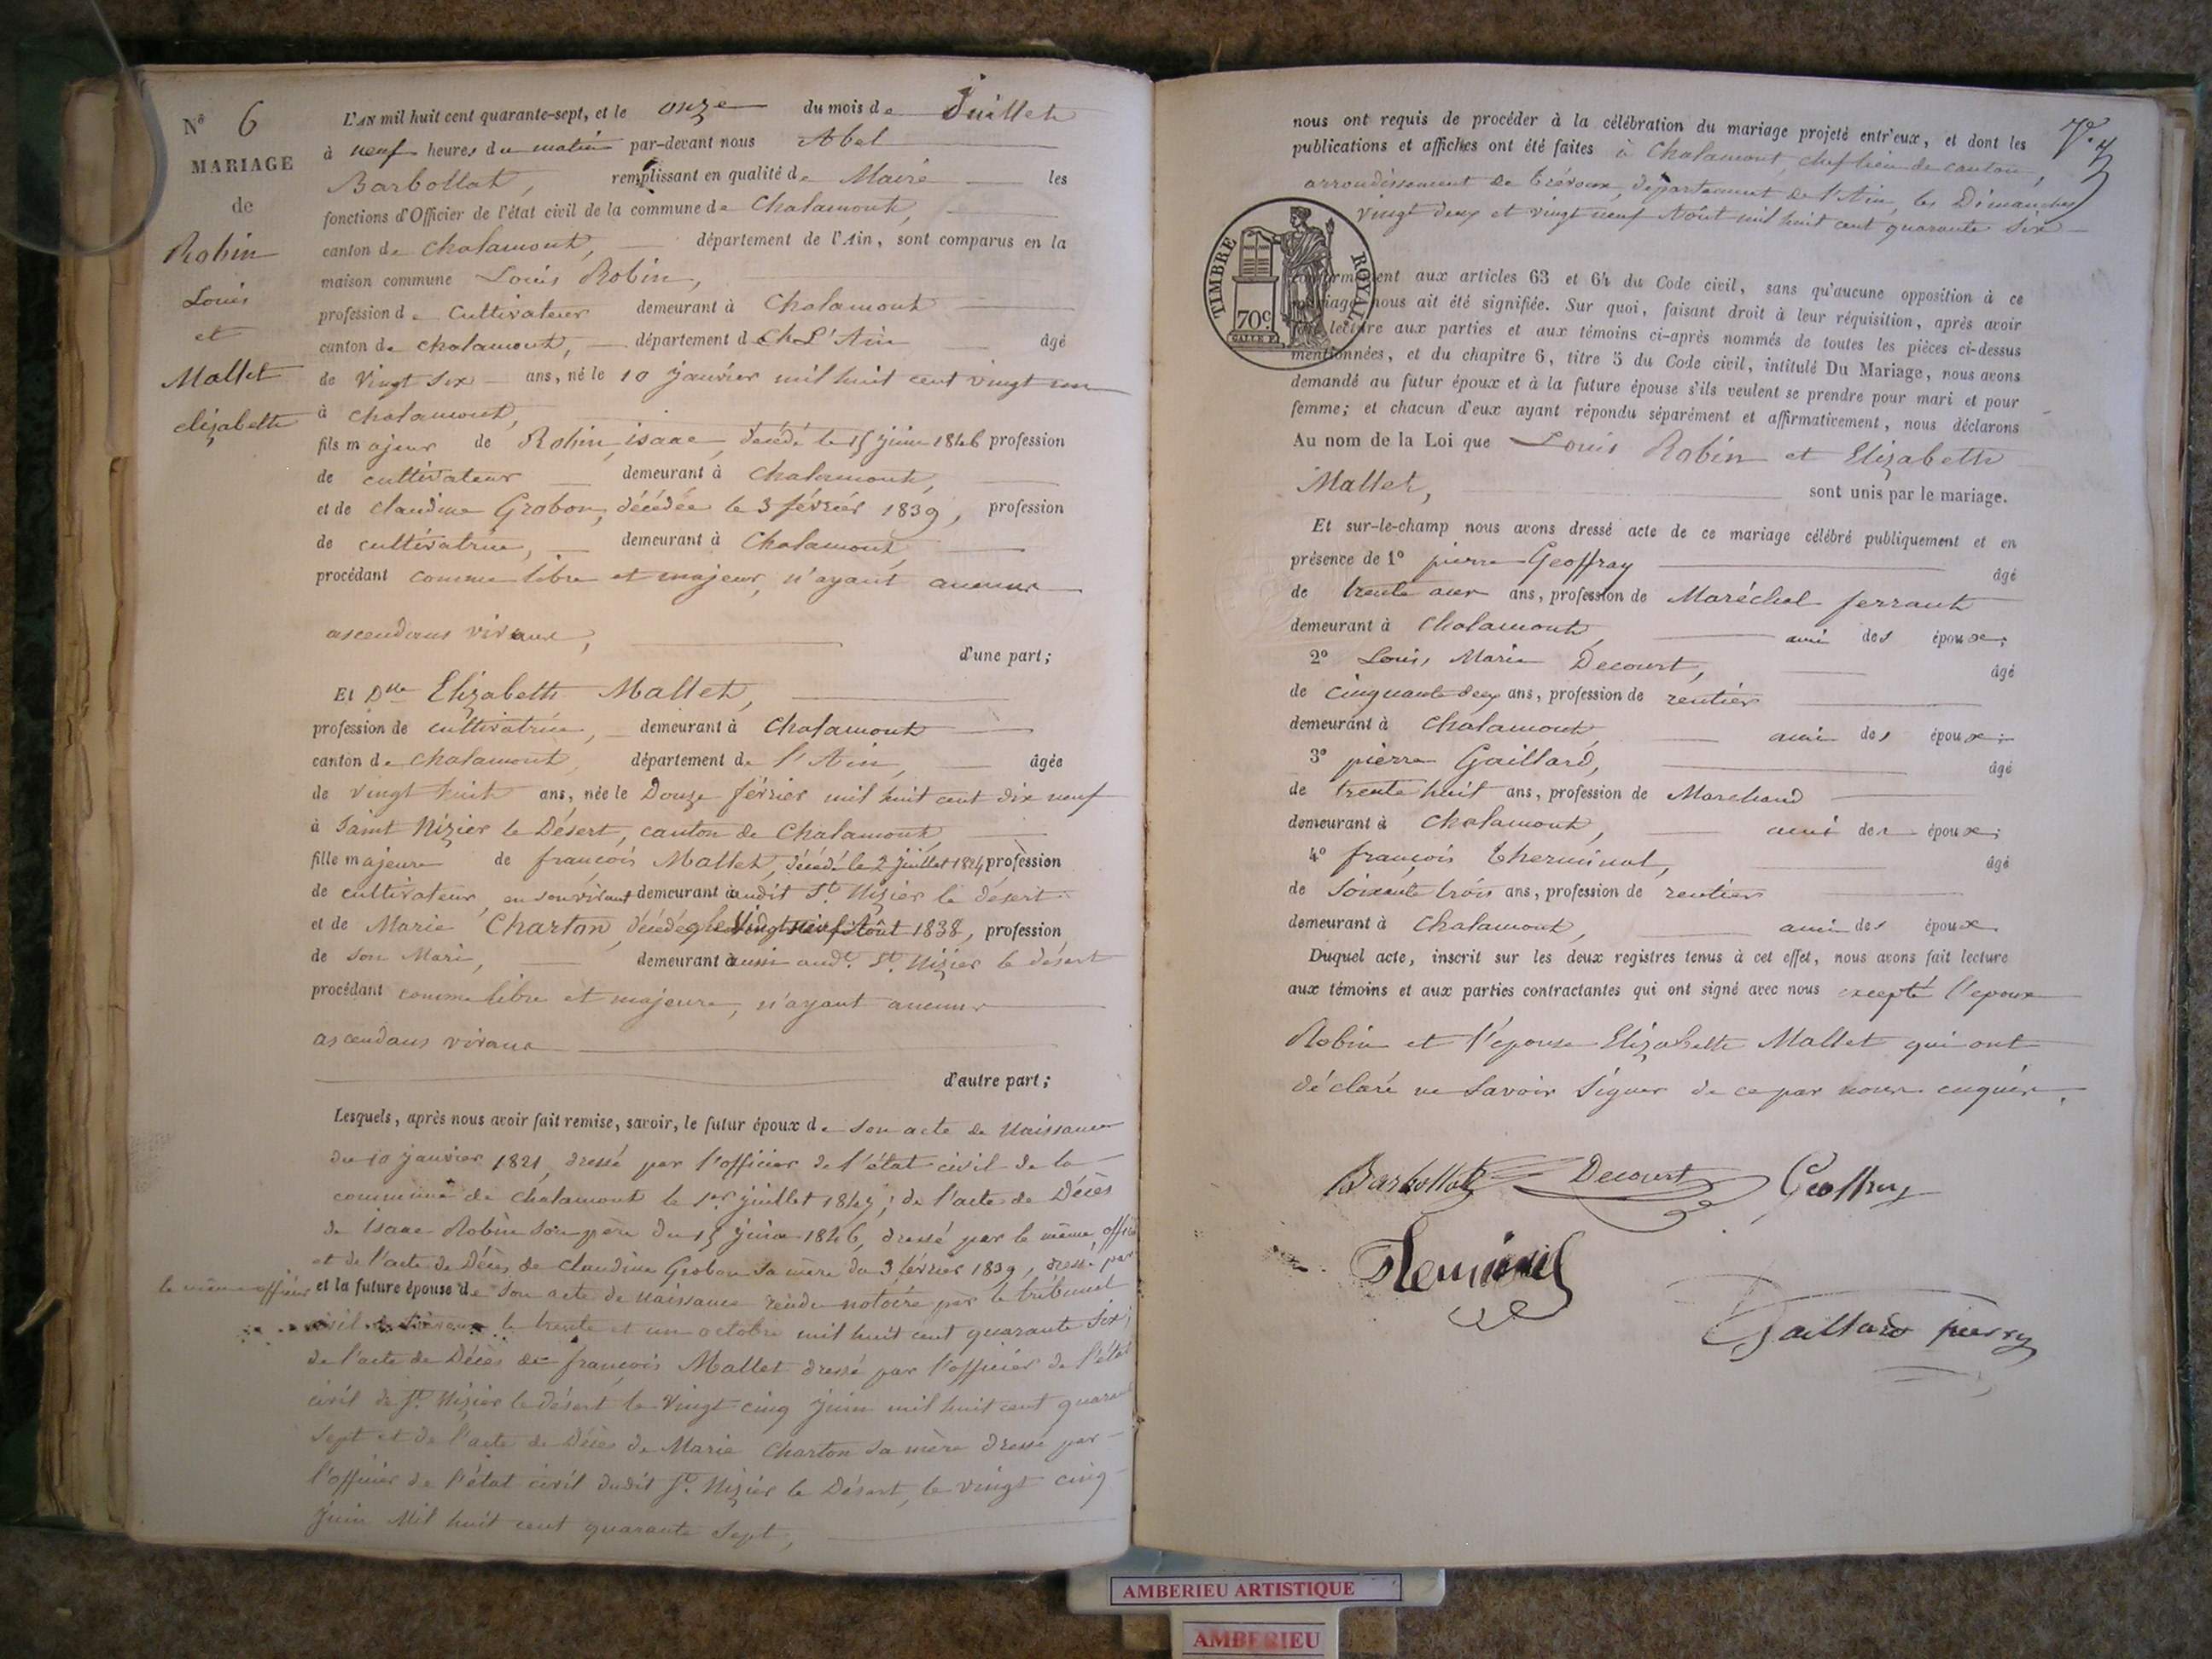 N° 6
MARIAGE
de
Robin
Louis
et
Mallet
elizabeth
L'AN mil huit cent quarante-sept, et le onze du mois de Juillet
à neuf heures du matin par-devant nous Abel
Barbollat, remplissant en qualité de Maire les
fonctions d'Officier de l'état civil de la commune de Chalamont,
canton de chalamont, département de l'Ain, sont comparus en la
maison commune Louis Robin,
profession de Cultivateur demeurant à Chalamont
canton de chalamont, département de L'Ain âgé
de Vingt Six ans, né le 10 janvier mil huit cent vingt un
à chalamont,
fils majeur de Robin isaac, décédé le 15 juin 1846 profession
de cultivateur demeurant à chalamont,
et de claudine Grobon, décédée le 3 février 1839, profession
de cultivatrice, demeurant à Chalamont
procédant comme libre et majeur, n'ayant aucuns
ascendans vivans,
d'une part;
Et Dlle Elizabeth Mallet,
profession de cultivatrice, demeurant à chalamont
canton de chalamont, département de l'Ain, âgée
de vingt huit ans, née le Douze février mil huit cent dix neuf
à Saint Nizier le Désert, canton de Chalamont,
fille majeure de françois Mallet, décédé le 2 juillet 1824 profession
de cultivateur, en son vivant demeurant audit St. Nizier le désert
et de Marie Charton, décédée le Vingt neuf Août 1838, profession
de son Mari, demeurant aussi audt. St. Nizier le désert
procédant comme libre et majeure, n'ayant aucuns
ascendans vivans
d'autre part;
Lesquels, après nous avoir fait remise, savoir, le futur époux de son acte de Naissance
du 10 janvier 1821, dressé par l'officier de l'état civil de la
commune de chalamont le 1er juillet 1847; de l'acte de Décès
de isaac Robin son père du 15 juin 1846, dressé par le même offi
et de l'acte de Décès de claudine Grobon sa mère du 3 février 1839, dressé par
le même officier et la future épouse de son acte de naissance rendu notoire par le tribunal
civil de Trévoux le trente et un octobre mil huit cent quarante six;
de l'acte de Décès de françois Mallet dressé par l'officier de l'état
civil de St. Nizier le désert le Vingt cinq juin mil huit cent quarante
sept et de l'acte de Décès de Marie Charton sa mère dressé par
l'officier de l'état civil dudit St. Nizier le Désert, le vingt cinq
juin Mil huit cent quarante sept,
nous ont requis de procéder à la célébration du mariage projeté entr'eux, et dont les
publications et affiches ont été faites à Chalamont, chef lieu de canton,
arrondissement de Trévoux, département de l'Ain, les Dimanches
vingt deux et vingt neuf Août mil huit cent quarante Six
TIMBRE ROYAL
70c
conformément aux articles 63 et 64 du Code civil, sans qu'aucune opposition à ce
mariage nous ait été signifiée. Sur quoi, faisant droit à leur réquisition, après avoir
lecture aux parties et aux témoins ci-après nommés de toutes les pièces ci-dessus
mentionnées, et du chapitre 6, titre 5 du Code civil, intitulé Du Mariage, nous avons
demandé au futur époux et à la future épouse s'ils veulent se prendre pour mari et pour
femme; et chacun d'eux ayant répondu séparément et affirmativement, nous déclarons
Au nom de la Loi que Louis Robin et Elizabeth
Mallet, sont unis par le mariage.
Et sur-le-champ nous avons dressé acte de ce mariage célébré publiquement et en
présence de 1° pierre Geoffray âgé
de trente ans, profession de Maréchal ferrant
demeurant à Chalamont, ami des époux;
2° Louis Marie Decourt, âgé
de cinquante deux ans, profession de rentier
demeurant à Chalamont, ami des époux;
3° pierre Gaillard, âgé
de trente huit ans, profession de Marchand
demeurant à chalamont, ami des époux;
4° françois Therminal, âgé
de Soixante trois ans, profession de rentier
demeurant à Chalamont, ami des époux
Duquel acte, inscrit sur les deux registres tenus à cet effet, nous avons fait lecture
aux témoins et aux parties contractantes qui ont signé avec nous excepté l'époux
Robin et l'épouse Elizabeth Mallet qui ont
déclaré ne savoir signer de ce par nous enquis.
Barbollat Decourt Geoffray
Gaillard pierre
AMBERIEU ARTISTIQUE
AMBERIEU